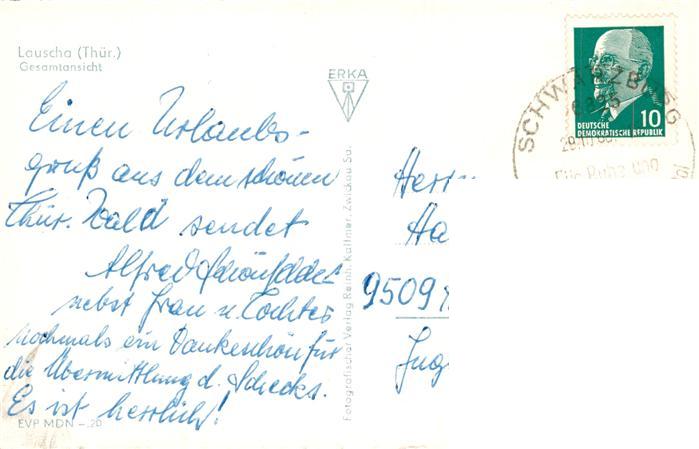 Lauscha (Thür.)
Gesamtansicht
Einen Urlaubs-
gruß aus dem schönen
Thür. Wald sendet
Alfred
nebst Frau u. Tochter
nochmals ein Dankeschön für
die Übermittlung d. Schecks.
Es ist herrlich!
EVP MDN -.20
ERKA
Fotografischer Verlag Reinh. Kallmer, Zwickau Sa.
SCHWARZBURG
DEUTSCHE
DEMOKRATISCHE REPUBLIK
10
Herrn
Ha
9509